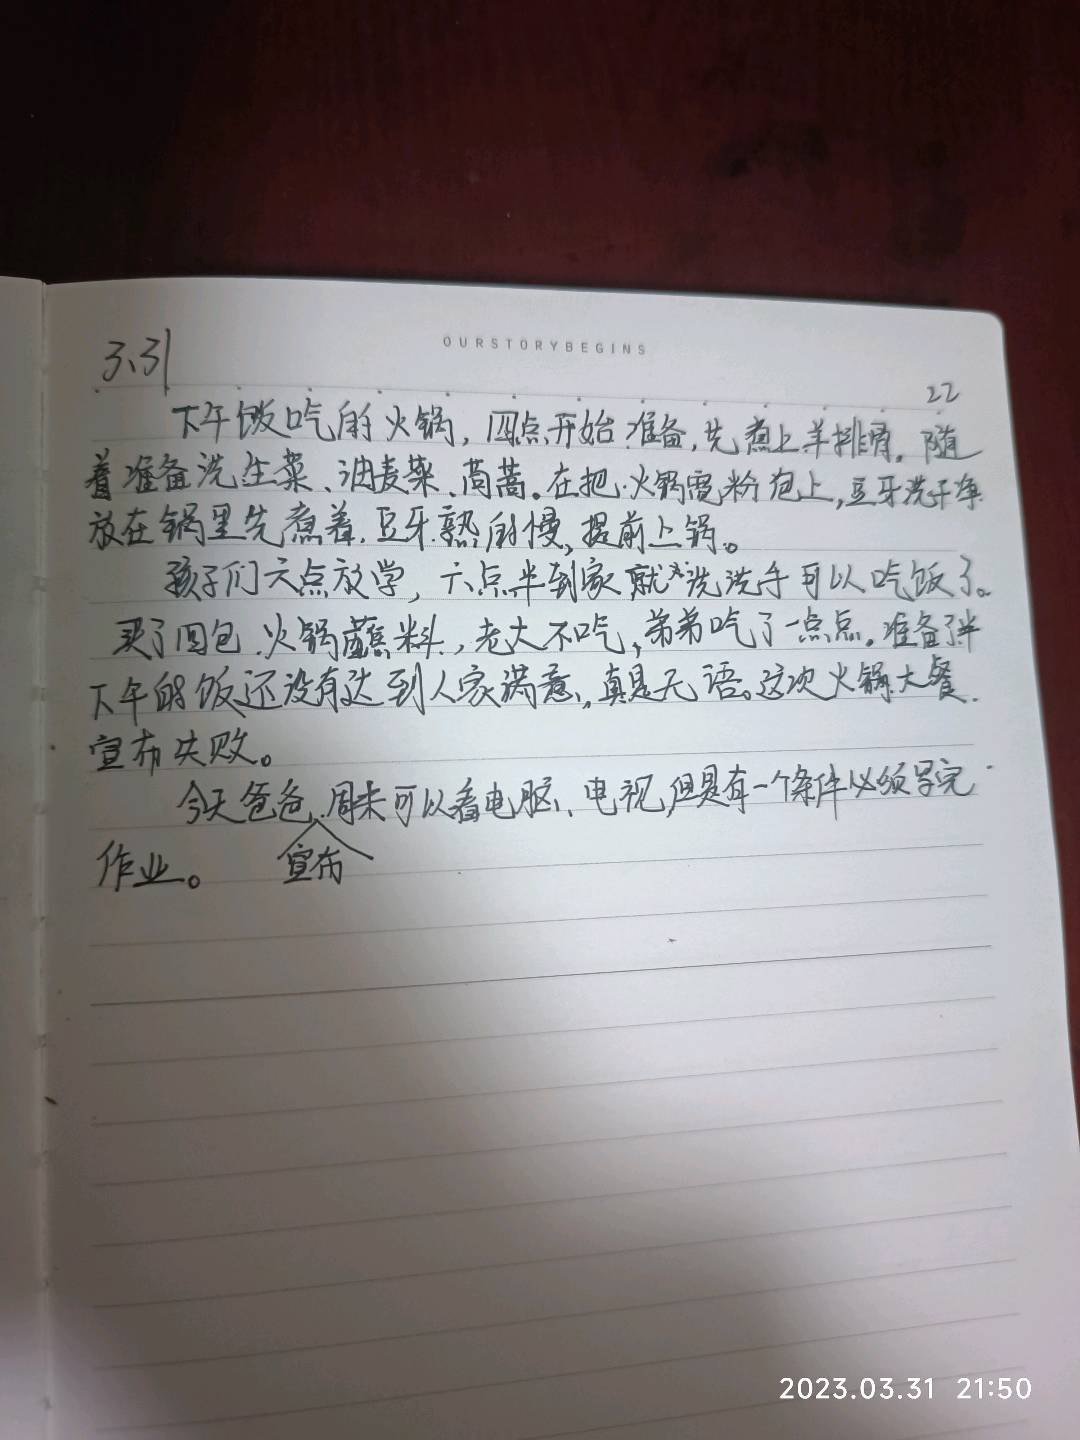 OURSTORYBEGINS
3、31
22
下午饭吃的火锅，四点开始准备，先煮上羊排骨。随
着准备洗生菜、油麦菜、茼蒿。在把火锅宽粉泡上，豆牙洗干净
放在锅里先煮着.豆牙熟的慢，提前上锅。
孩子们六点放学，六点半到家就洗洗手可以吃饭了。
买了四包火锅蘸料，老大不吃，弟弟吃了一点点。准备了半
下午的饭还没有达到人家满意，真是无语。这次火锅大餐
宣布失败。
今天爸爸宣布周末可以看电脑、电视，但是有一个条件必须写完
作业。
2023.03.31 21:50